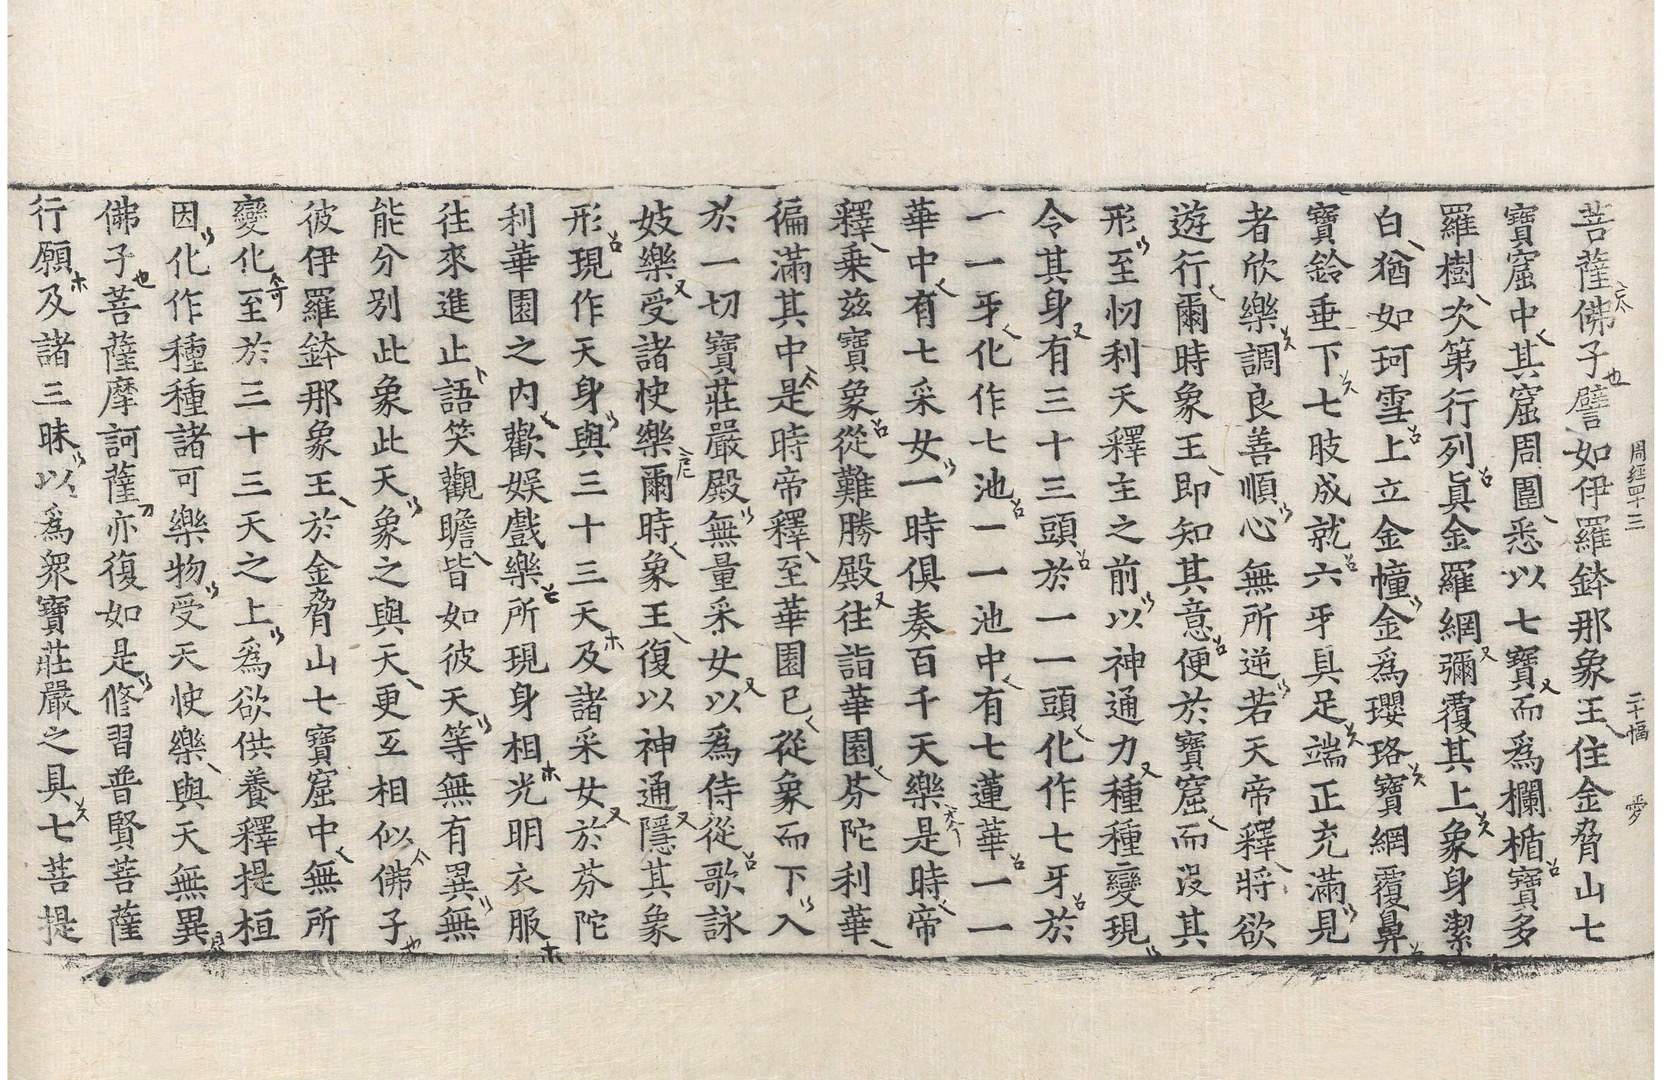 菩薩佛子譬如伊羅鉢那象王住金脅山七
寶窟中其窟周圍悉以七寶而爲欄楯寶多
羅樹次第行列眞金羅網彌覆其上象身潔
白猶如珂雪上立金幢金爲瓔珞寶網覆鼻
寶鈴垂下七肢成就六牙具足端正充滿見
者欣樂調良善順心無所逆若天帝釋將欲
遊行爾時象王即知其意便於寶窟而沒其
形至忉利天釋主之前以神通力種種變現
令其身有三十三頭於一一頭化作七牙於
一一牙化作七池一一池中有七蓮華一一
華中有七采女一時俱奏百千天樂是時帝
釋乘茲寶象從難勝殿往詣華園芬陀利華
徧滿其中是時帝釋至華園已從象而下入
於一切寶莊嚴殿無量采女以爲侍從歌詠
妓樂受諸快樂爾時象王復以神通隱其象
形現作天身與三十三天及諸采女於芬陀
利華園之內歡娛戲樂所現身相光明衣服
往來進止語笑觀瞻皆如彼天等無有異無
能分別此象此天象之與天更互相似佛子
彼伊羅鉢那象王於金脅山七寶窟中無所
變化至於三十三天之上爲欲供養釋提桓
因化作種種諸可樂物受天快樂與天無異
佛子菩薩摩訶薩亦復如是修習普賢菩薩
行願及諸三昧以爲衆寶莊嚴之具七菩提
周經四十三 二十幅